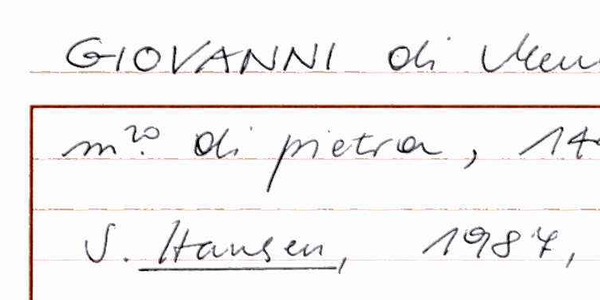 GIOVANNI di
m.ro di pietra,
S. Hansen, 1987,